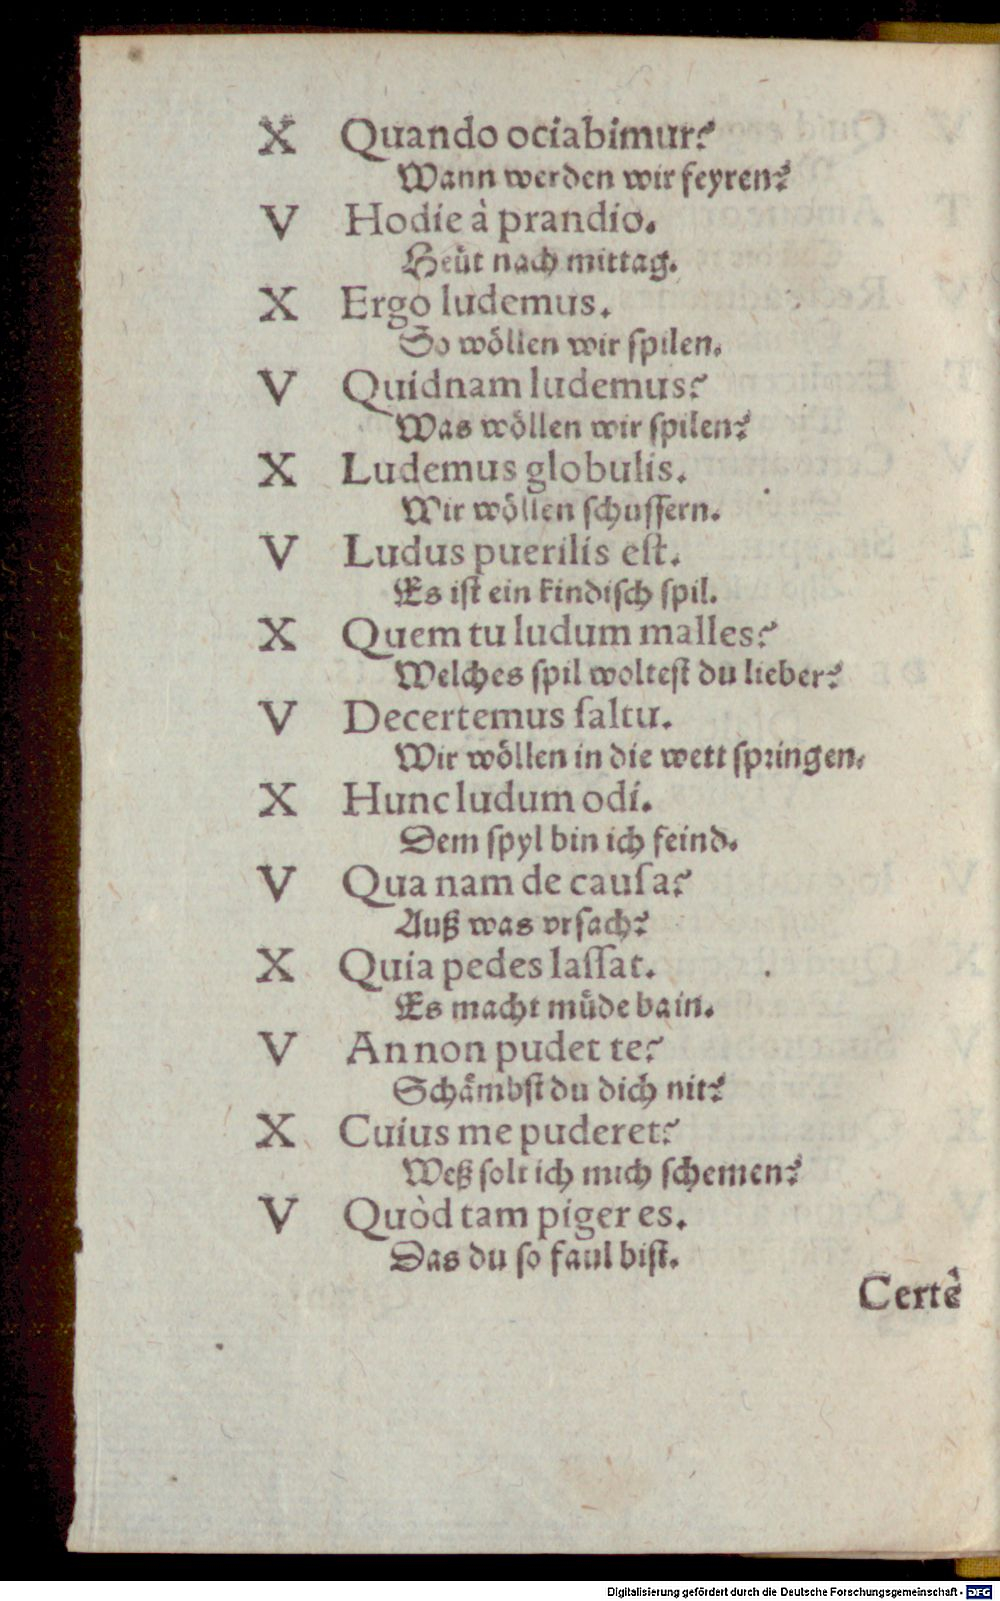 X Quando ociabimur?
Wann werden wir feyren?
V Hodie à prandio.
Heüt nach mittag.
X Ergo ludemus.
So wöllen wir spilen.
V Quidnam ludemus?
Was wöllen wir spilen?
X Ludemus globulis.
Wir wöllen schussern.
V Ludus puerilis est.
Es ist ein kindisch spil.
X Quem tu ludum malles?
Welches spil woltest du lieber?
V Decertemus saltu.
Wir wöllen in die wett springen.
X Hunc ludum odi.
Dem spyl bin ich feind.
V Qua nam de causa?
Auß was vrsach?
X Quia pedes lassat.
Es macht müde bain.
V An non pudet te?
Schämbst du dich nit?
X Cuius me puderet?
Weß solt ich mich schemen?
V Quòd tam piger es.
Das du so faul bist.
Certè
Digitalisierung gefördert durch die Deutsche Forschungsgemeinschaft - DFG